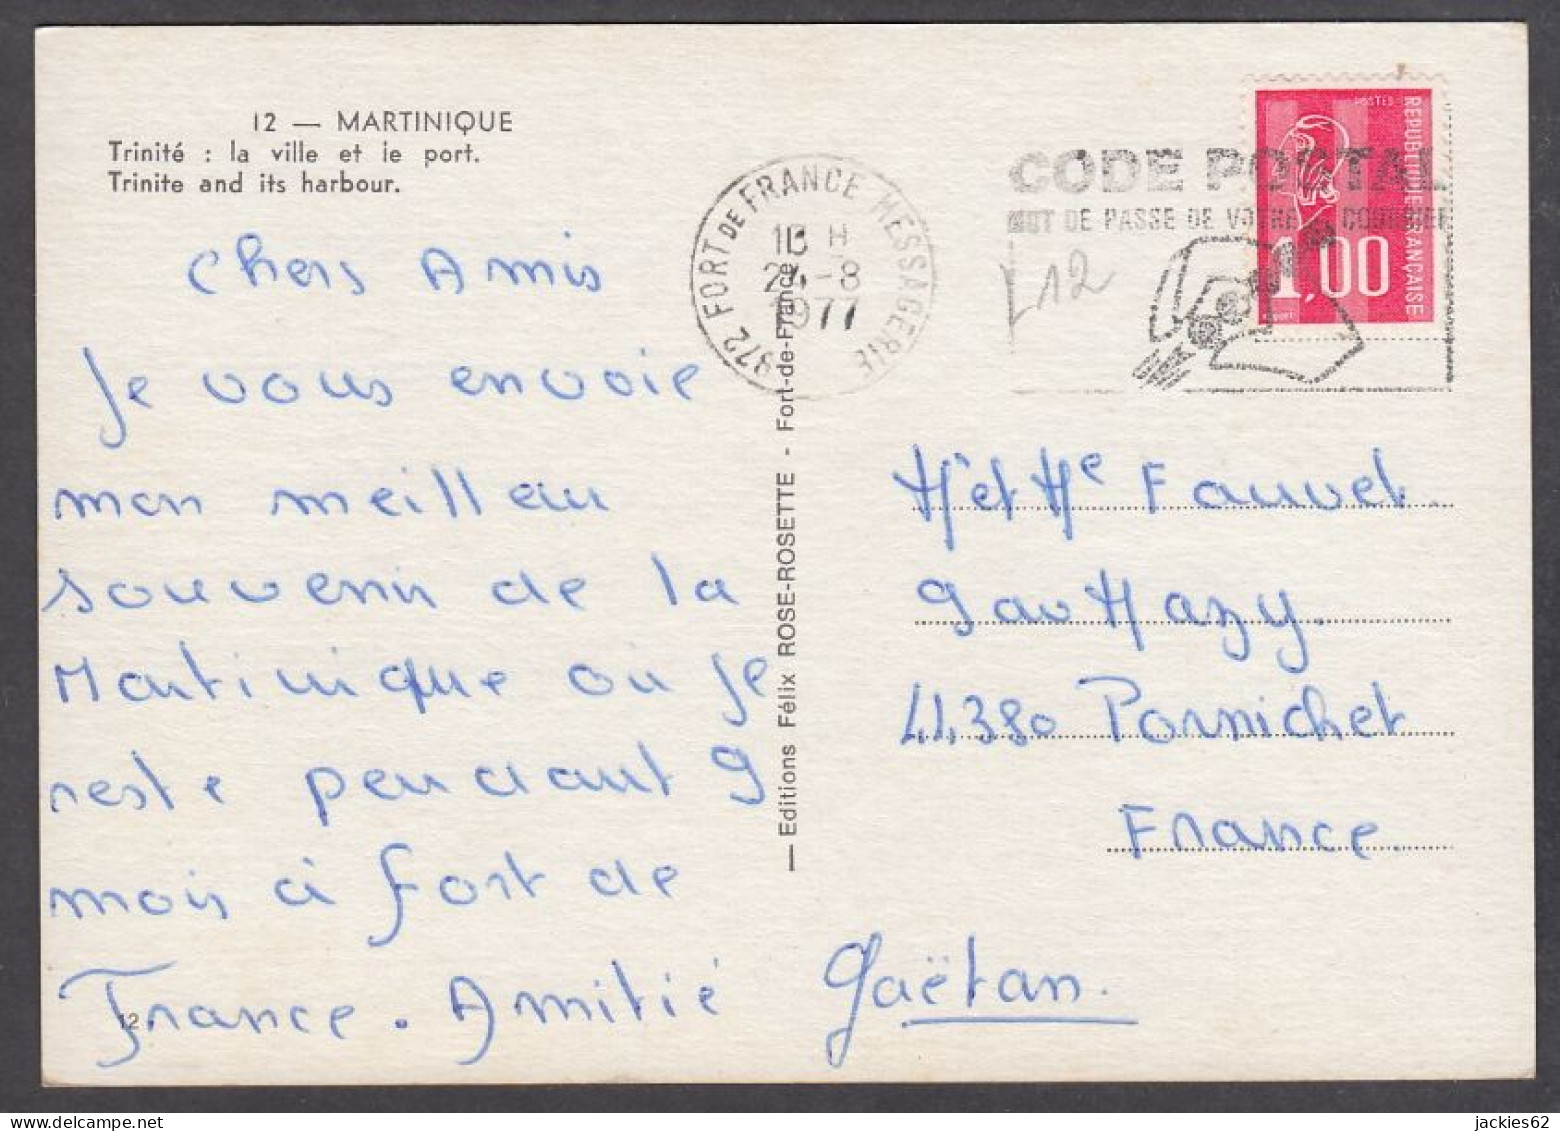 12 — MARTINIQUE
Trinité : la ville et le port.
Trinite and its harbour.
Chers Amis
Je vous envoie
mon meilleau
souvenir de la
Martinique où je
reste pendant 9
mois à Fort de
France. Amitié Gaëtan.
12
— Editions Félix ROSE-ROSETTE - Fort-de-France
972 FORT DE FRANCE MESSAGERIE
H
24-8
1977
CODE POSTAL
MOT DE PASSE DE VOTRE COURRIER
L12
POSTES
REPUBLIQUE FRANÇAISE
1,00
Mr et Mme Fauvel.
9 av Mazy.
44380 Pornichet
France.
jackies62